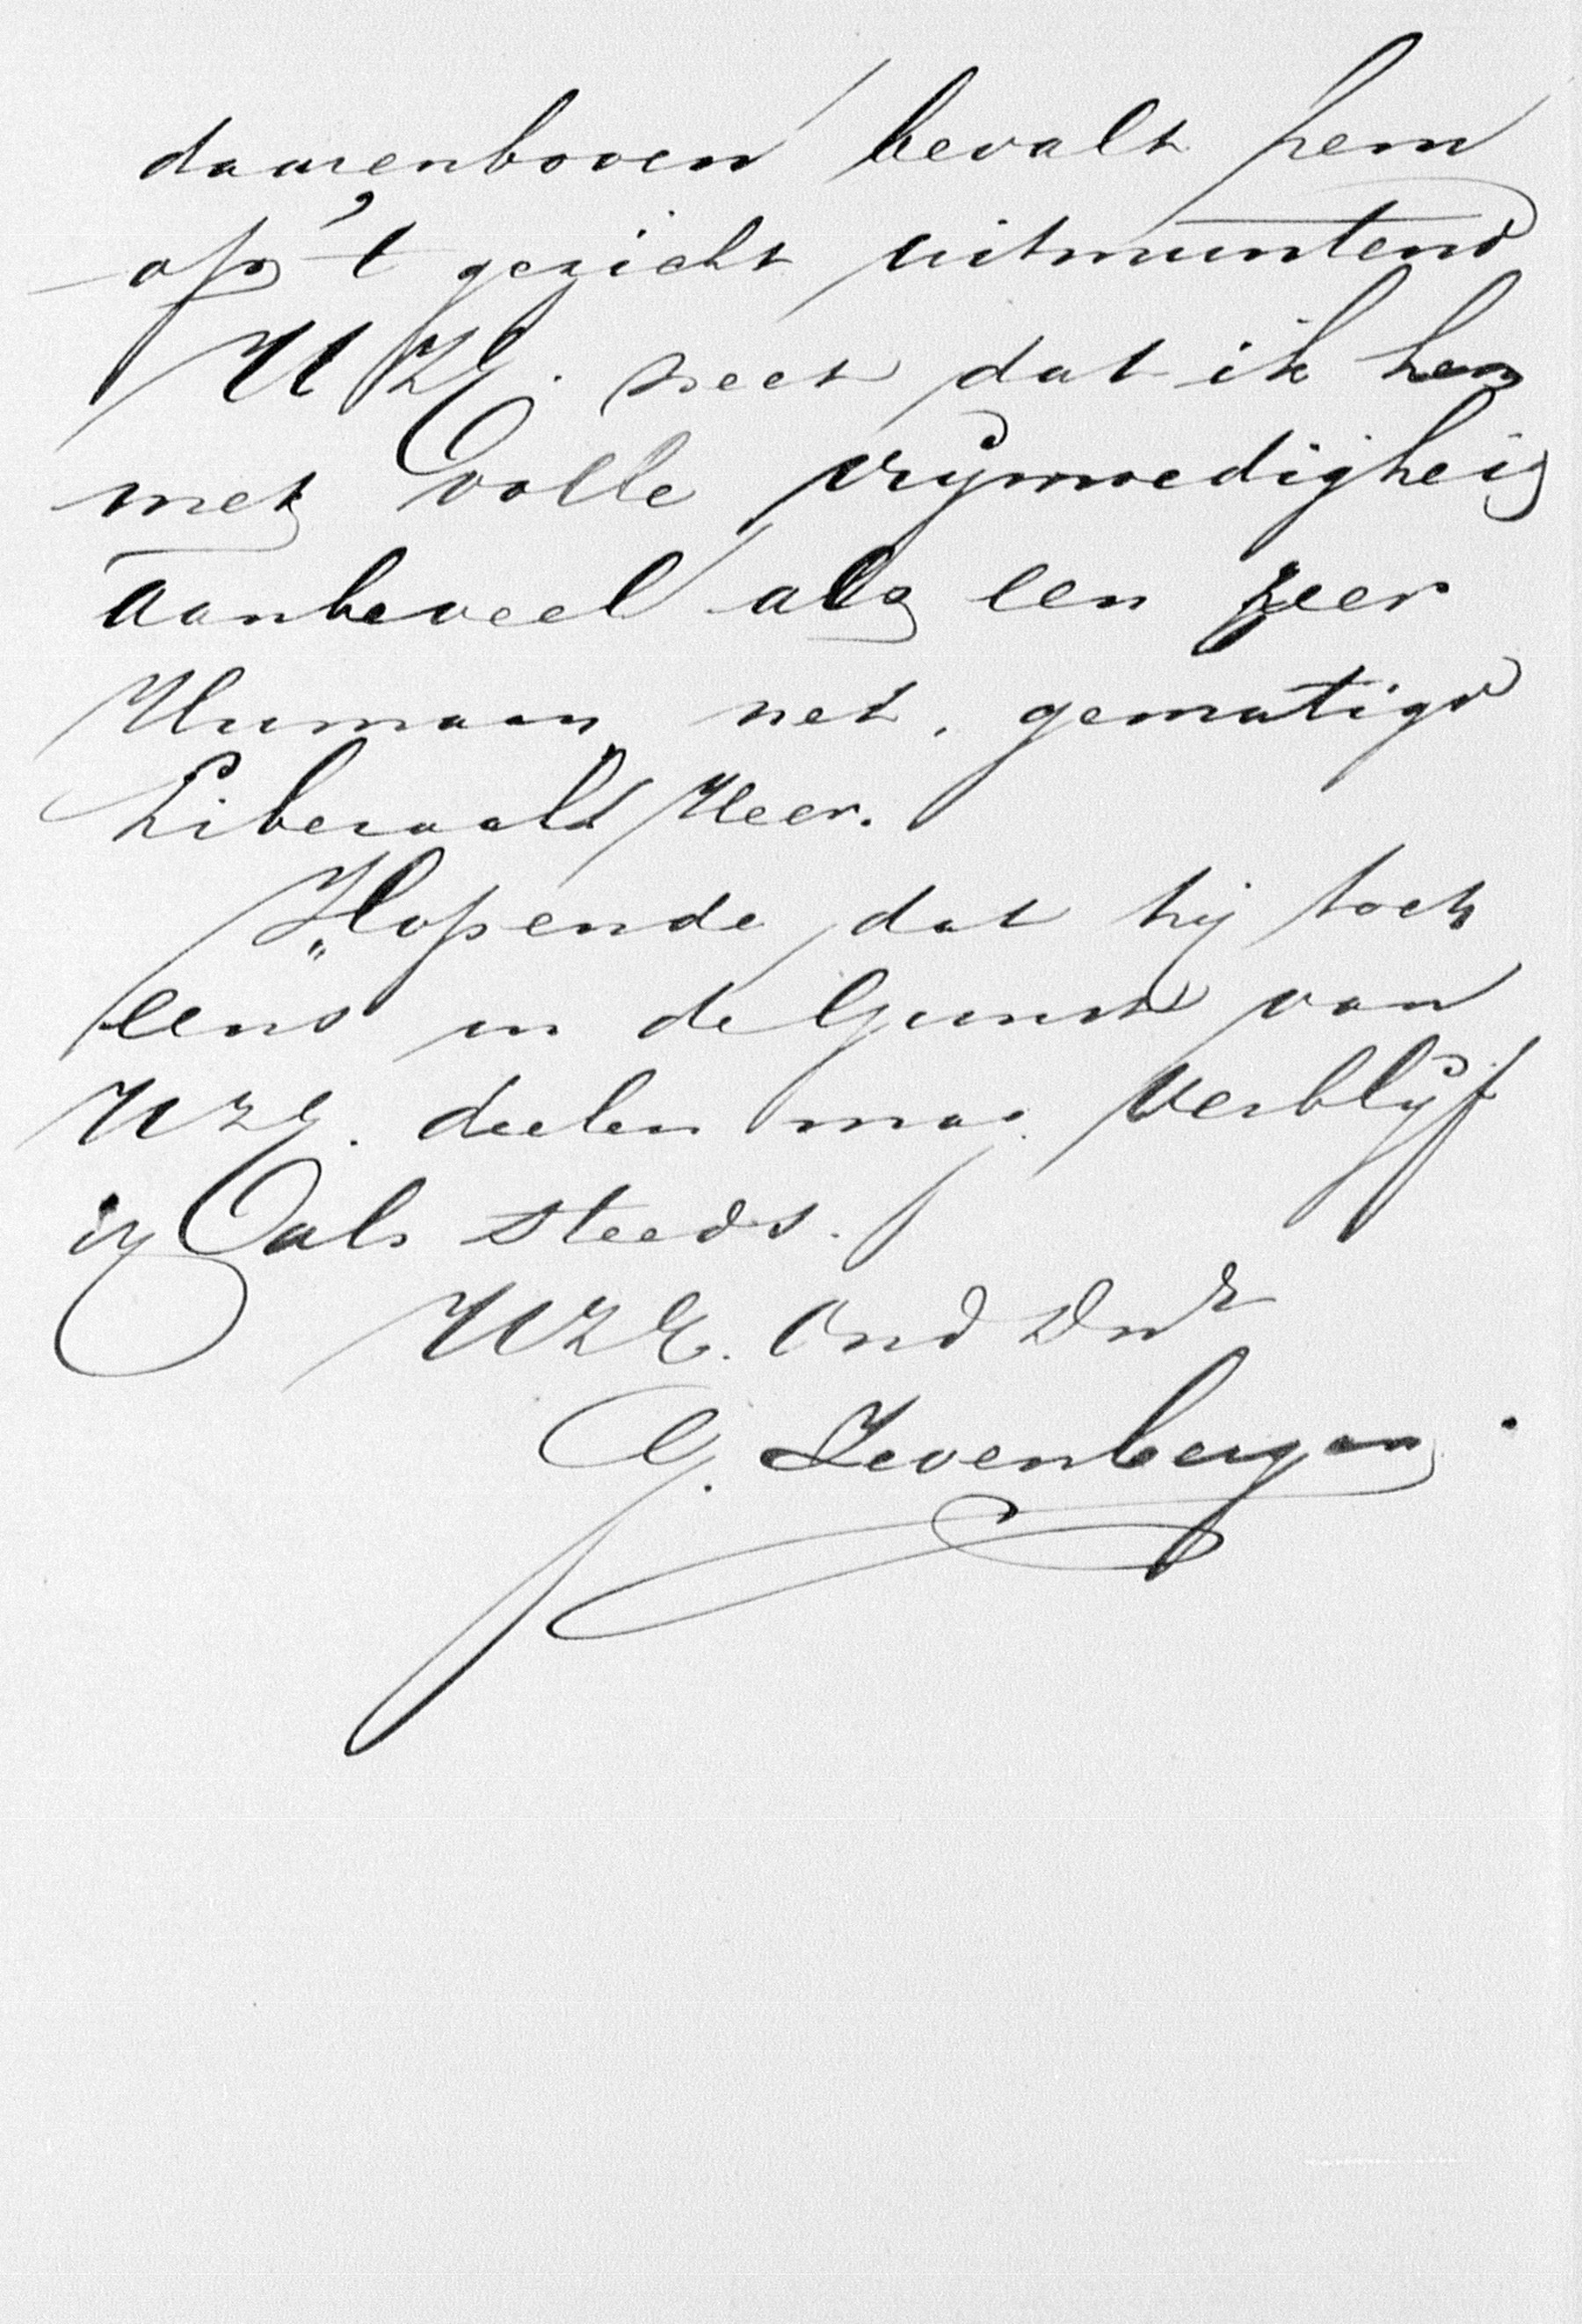 daarenboven bevalt hem
op 't gezicht uitmuntend
UZE. weet dat ik hem
met volle vrijmoedigheid
aanbeveel als een zeer
Humaan, net, gematigd
Liberaald Heer.
Hopende dat hij toch
eens in de Gunst van
UZE. deelen mag. Verblijf
ik als steeds.
UZE. Ond Dnr
G. Zevenbergen.